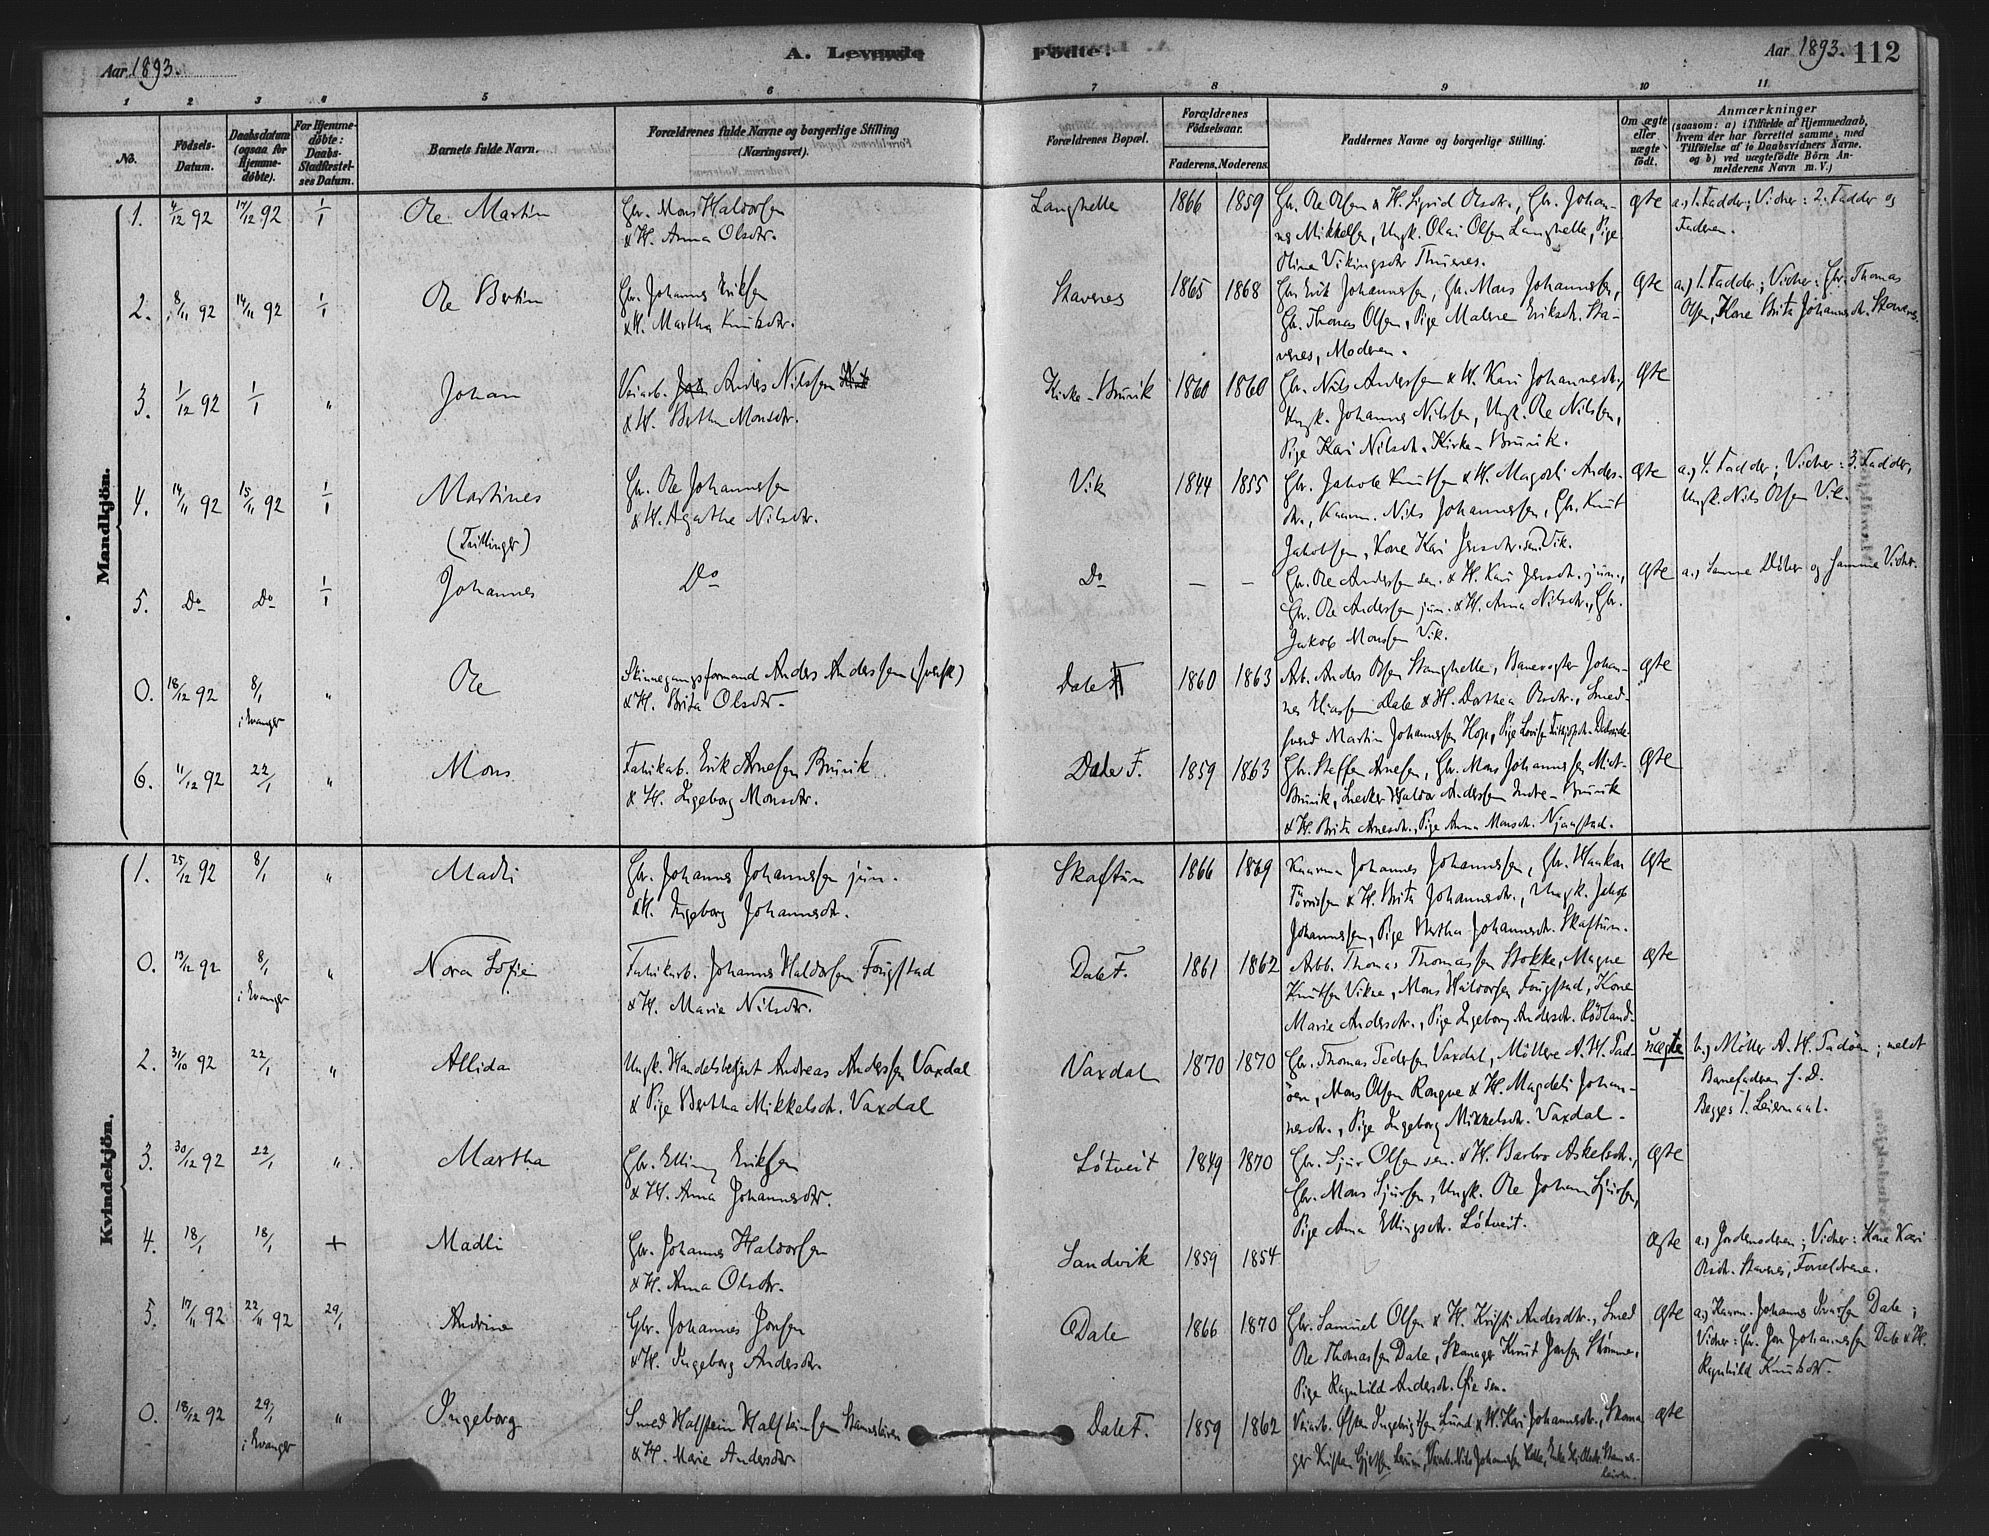 Aar 1893.
A. Levende
Födte.
Aar 1893. 112
1 2 3 4 5 6 7 8 9 10 11
No.
Födsels-Datum.
Daabsdatum (ogsaa for Hjemmedøbte).
For Hjemmedøbte: Daabs-Stadfæstelses Datum.
Barnets fulde Navn.
Forældrenes fulde Navne og borgerlige Stilling (Næringsvei).
Forældrenes Bopæl.
Forældrenes Födselsaar.
Faderens. Moderens.
Faddernes Navne og borgerlige Stilling.
Om ægte eller uægte födt.
Anmærkninger (saasom: a) i Tilfælde af Hjemmedaab, hvem der har forrettet samme, med Tilföielse af to Daabsvidners Navne, og b) ved uægtefödte Börn Anmelderens Navn m. V.)
Mandkjön.
1. 4/12 92 17/12 92 1/1 Ole Martin
Gbr. Mons Haldorsen
& H. Anna Olsdtr.
Langhelle 1866 1859
Gbr. Ole Olsen & H. Sigrid Olsdtr., Gbr. Johan-
nes Mikkelsen, Ungk. Olai Olsen Langhelle, Pige
Oline Vikingsdtr Thunes.
ægte
a.) 1. Fadder; Vidner: 2. Fadder og
Faderen.
2. 8/11 92 14/11 92 1/1 Ole Bertin
Gbr. Johannes Eriksen
& H. Martha Knutsdtr.
Stavenes 1865 1868
Gbr. Erik Johannessen, Gbr. Mons Johannessen,
Gbr. Thomas Olsen, Pige Malene Eriksdtr. Sta-
venes, Moderen.
ægte
a.) 1. Fadder; Vidner: Gbr. Thomas
Olsen, Kone Brita Johannesdtr. Stavenes.
3. 1/12 92 1/1 " Johan
Veiarb. Anders Nilssen
& H. Bertha Monsdtr.
Kirke-Bruvik 1860 1860
Gbr. Nils Anderssen & H. Kari Johannesdtr.,
Ungk. Johannes Nilssen, Ungk. Ole Nilssen,
Pige Kari Nilsdtr. Kirke-Bruvik.
ægte
4. 14/11 92 15/11 92 1/1 Martines
(Tvillinger)
Gbr. Ole Johannessen
& H. Agathe Nilsdtr.
Vik 1844 1855
Gbr. Jakob Knutsen & H. Magdli Anders-
dtr., Kaarm. Nils Johannessen, Gbr. Knut
Jakobsen, Kone Kari Jensdtr. sen. Vik.
ægte
a.) 4. Fadder; Vidner: 3. Fadder,
Ungk. Nils Olsen Vik.
5. Do Do 1/1 Johannes
Do
Do — —
Gbr. Ole Anderssen sen. & H. Kari Jensdtr. jun.,
Gbr. Ole Anderssen jun. & H. Anna Nilsdtr., Gbr.
Jakob Monssen Vik.
ægte
a.) Samme Döber og samme Vidner.
0. 18/12 92 8/1 i Evanger " Ole
Skinnegangsformand Anders Anderssen
& H. Brita Olsdtr.
Dale F. 1860 1863
Arb. Anders Olsen Stanghelle, Banevogter Johan-
nes Eliassen Dale & H. Dorthea Olsdtr., Smed-
svend Martin Johannessen Hop, Pige
ægte
6. 11/12 92 22/1 " Mons
Fabrikarb. Erik Arnesen Bruvik
& H. Ingeborg Monsdtr.
Dale F. 1859 1863
Gbr. Steffen Arnesen, Gbr. Mons Johannessen Midt-
Bruvik, Snedker Haldor Anderssen Indre-Bruvik
& H. Brita Arnesdtr., Pige Anna Monsdtr. Njaastad.
ægte
Kvindekjön.
1. 25/12 92 8/1 " Madli
Gbr. Johannes Johannessen jun.
& H. Ingeborg Johannesdtr.
Skaftun 1866 1869
Kaarm. Johannes Johannessen, Gbr. Haakon
& H. Brita Johannesdtr., Ungk. Jakob
Johannessen, Pige Bertha Johannesdtr. Skaftun.
ægte
0. 19/12 92 8/1 i Evanger " Nora Sofie
Fabrikarb. Johannes Haldorsen Fougstad
& H. Marie Nilsdtr.
Dale F. 1861 1862
Arbb. Thomas Thomassen Stokke, Magne
Knutsen Vikne, Mons Haldorsen Fougstad, Kone
Marie Andersdtr., Pige Ingeborg Andersdtr. Rödland.
ægte
2. 31/10 92 22/1 " Allida
Ungk. Handelsbetjent Andreas Anderssen Vaxdal
& Pige Bertha Mikkelsdtr. Vaxdal
Vaxdal 1870 1870
Gbr. Thomas Vaxdal, Möller A. H. Fad-
öen, Mons Olsen Rongve & H. Magdeli Johan-
nesdtr., Pige Ingeborg Mikkelsdtr. Vaxdal.
uægte
b.) Möller A. H. Fadöen; meldt
Barnefaderen s. D.
Begges 1. Leiermaal.
3. 30/12 92 22/1 " Martha
Gbr. Elling Eriksen
& H. Anna Johannesdtr.
Lötveit 1849 1870
Gbr. Sjur Olsen sen. & H. Barbro Askelsdtr.,
Gbr. Mons Sjursen, Ungk. Ole Johan Sjursen,
Pige Anna Ellingsdtr. Lötveit.
ægte
4. 18/1 18/1 + Madli
Gbr. Johannes Haldorsen
& H. Anna Olsdtr.
Sandvik 1859 1854
ægte
a.) Jordemoderen; Vidner: Kone Kari
Olsdtr. Stavenes, Forældrene.
5. 17/11 92 22/11 92 29/1 Andrine
Gbr. Johannes Jonsen
& H. Ingeborg Andersdtr.
Dale 1866 1870
Gbr. Samuel Olsen & H. Kristi Andersdtr., Smed
Ole Thomassen Dale, Skomager Knut Jonsen Strömme,
Pige Ragnhild Andersdtr. Øie sen.
ægte
a.) Kaarm. Johannes Ivarsen Dale;
Vidner: Gbr. Jon Johannessen Dale & H.
Ragnhild Knutsdtr.
0. 18/12 92 29/1 i Evanger " Ingeborg
Smed Halstein Halsteinsen Stamnesleiren
& H. Marie Andersdtr
Dale F. 1859 1862
Veiarb. Östen Lund & H. Kari Johannesdtr., Skoma-
ger Kristen Veiarb. Nils Johannessen Stamnes-
leiren.
ægte